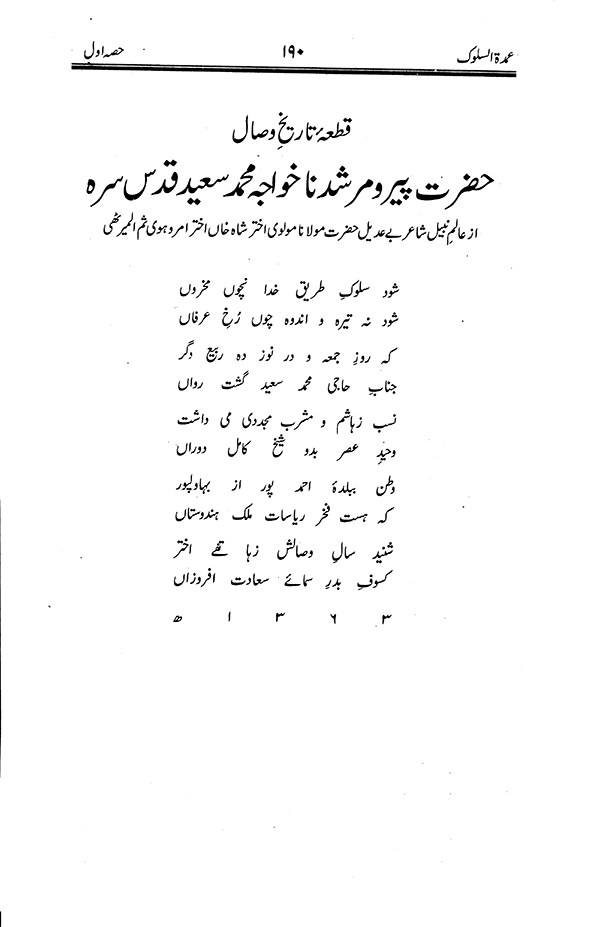 عمدۃ السلوک ۱۹۰ حصہ اول
قطعۂ تاریخِ وصال
حضرت پیر و مرشدنا خواجہ محمد سعید قدس سرہ
از عالمِ نبیل شاعر بے عدیل حضرت مولانا مولوی اختر شاہ خاں اختر امروہوی ثم المیرٹھی
شود سلوکِ طریق خدا نچوں مخروں
شود نہ تیرہ و اندوہ چوں رُخِ عرفاں
کہ روزِ جمعہ و در نوز دہ ربیع دگر
جنابِ حاجی محمد سعید گشت رواں
نسب زہاشم و مشرب مجددی می داشت
وحیدِ عصر بدو شیخِ کامل دوراں
وطن ببلدۂ احمد پور از بہاولپور
کہ ہست فخر ریاسات ملک ہندوستاں
شنید سالِ وصالش زہا تفے اختر
کسوفِ بدرِ سمائے سعادت افروزاں
۳ ۶ ۳ ۱ ھ